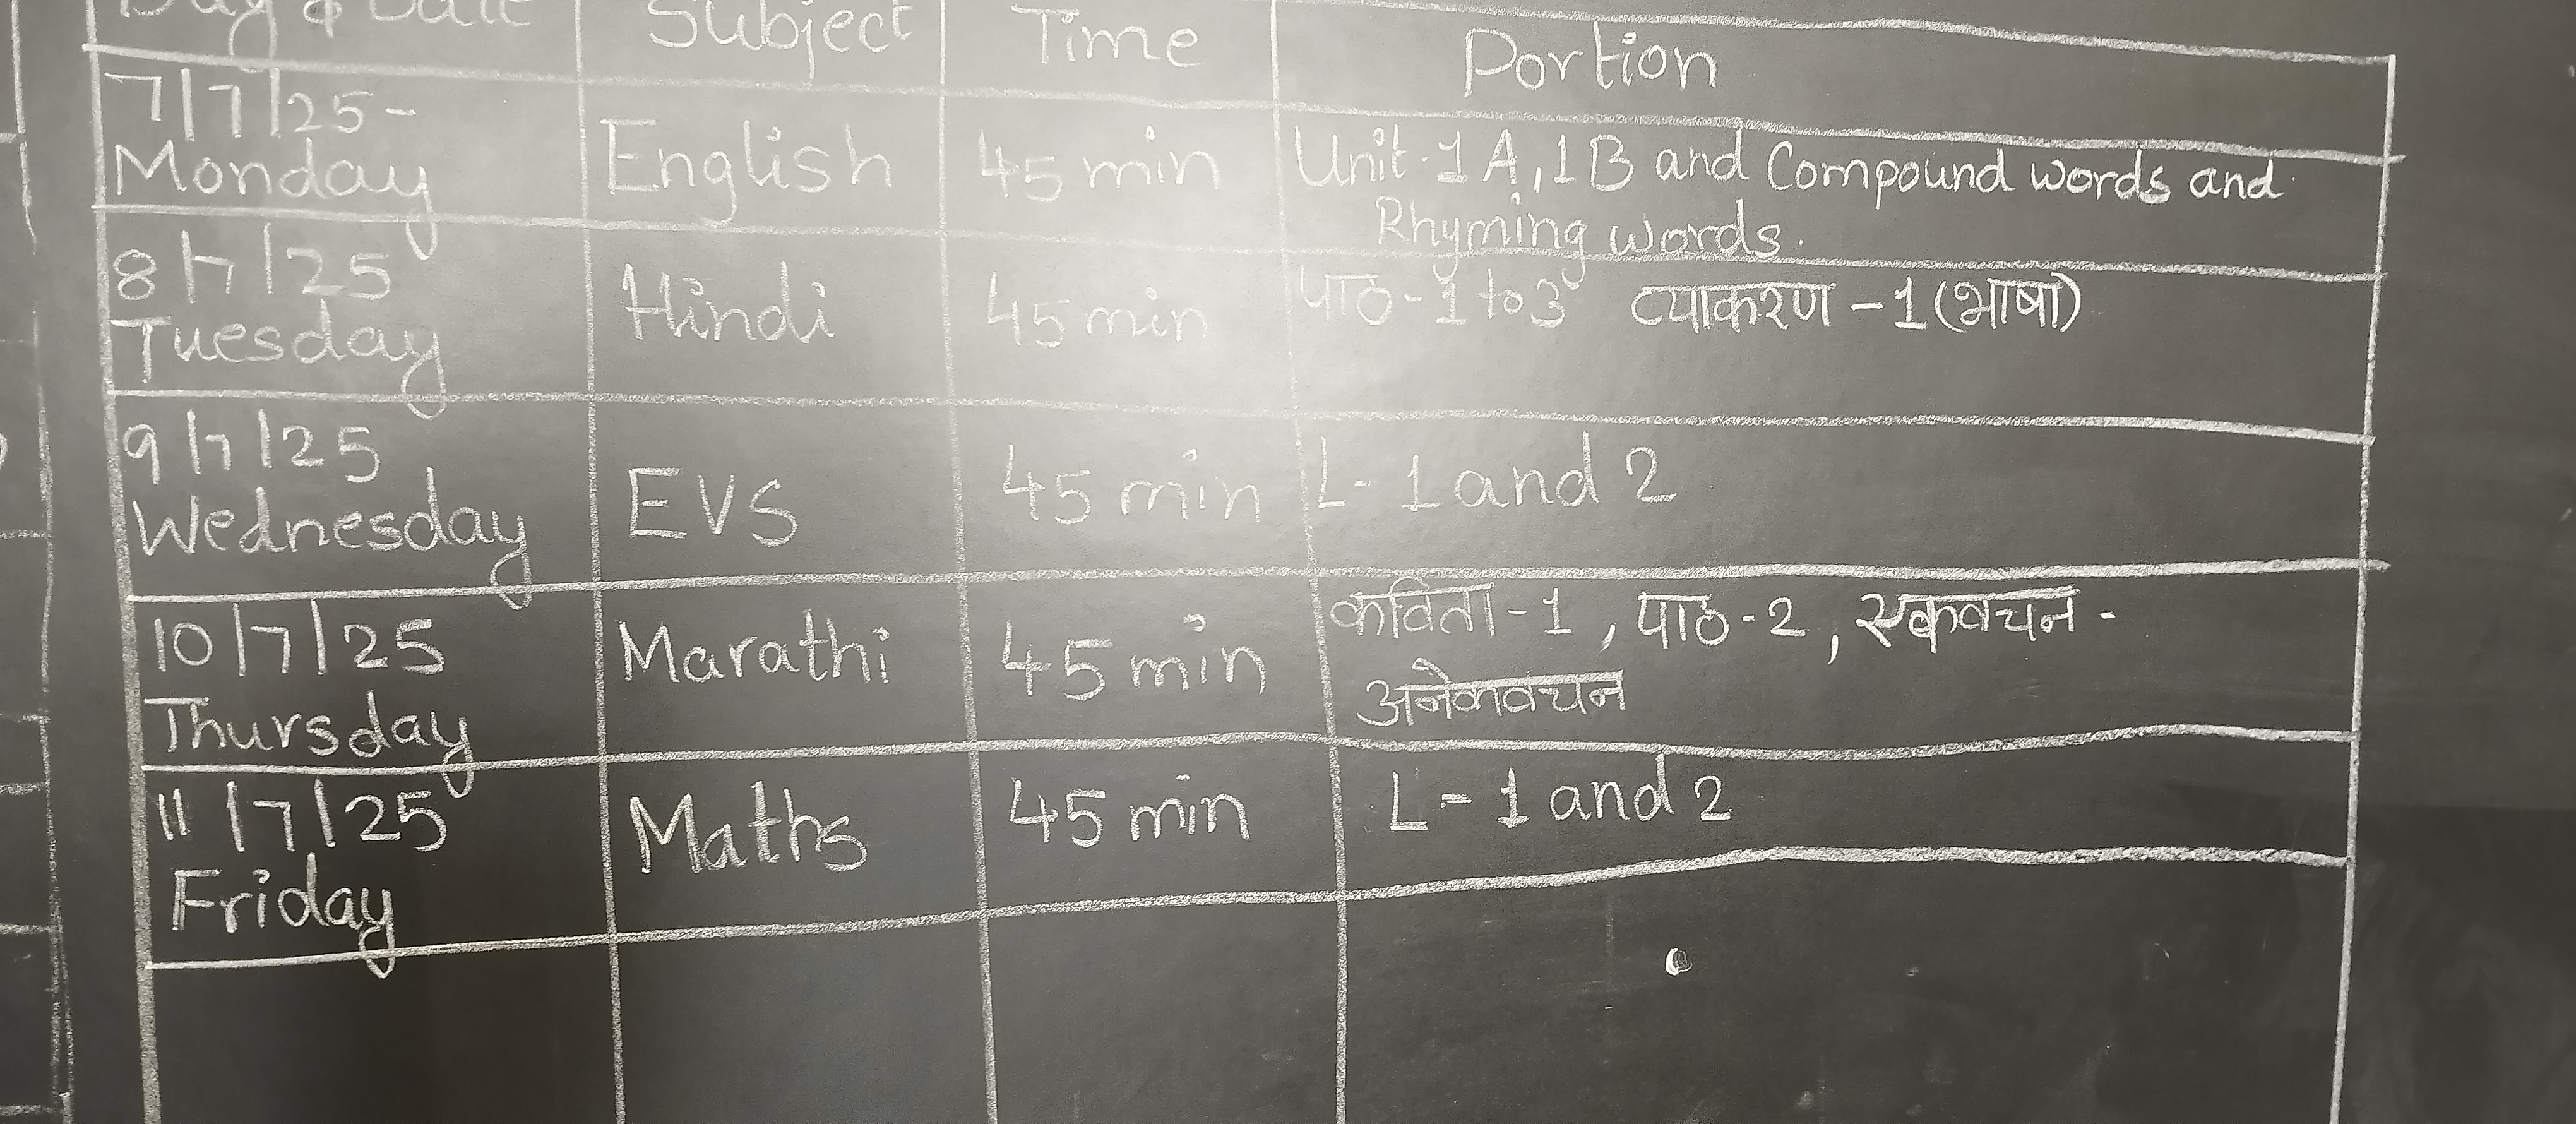 Day & Date Subject Time Portion
7/7/25-
Monday English 45 min Unit-1A, 1B and Compound words and
Rhyming words.
8/7/25
Tuesday Hindi 45 min पाठ-1 to 3 व्याकरण-1 (भाषा)
9/7/25
Wednesday EVS 45 min L- 1 and 2
10/7/25
Thursday Marathi 45 min कविता-1, पाठ-2, एकवचन-
अनेकवचन
11/7/25
Friday Maths 45 min L- 1 and 2